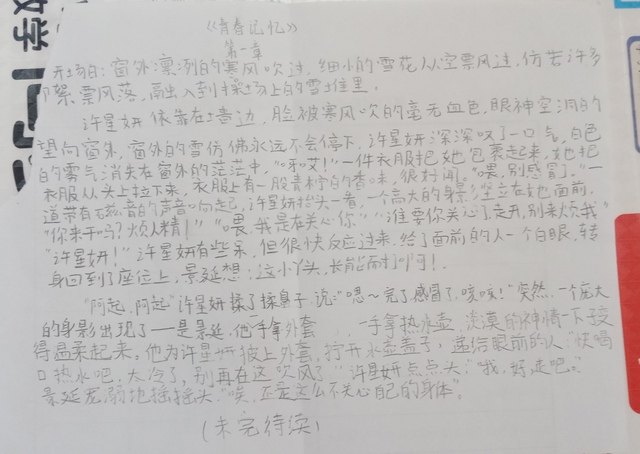 《青春记忆》
第一章
开场白：窗外凛冽的寒风吹过，细小的雪花从空飘风过，仿若许多
絮，票风落，融入到操场上的雪堆里。
许星妍依靠在墙边，脸被寒风吹的毫无血色，眼神空洞的
望向窗外，窗外的雪仿佛永远不会停下，许星妍深深叹了一口气，白色
的雾气消失在窗外的茫茫中，"呀哎！"一件衣服把她包裹起来，她把
衣服从头上拉下来，衣服上有一股青柠的香味，很好闻。"喂，别感冒。"一
道带有磁音的声音响起，许星妍抬头一看，一个高大的身影坐立在她面前，
"你来干吗？烦人精！""喂，我是在关心你""谁要你关心了走开，别来烦我"
"许星妍！"许星妍有些呆，但很快反应过来，给了面前的人一个白眼，转
身回到了座位上，景延想：这小丫头，长能耐了
"阿起，阿起"许星妍揉了揉鼻子，说："嗯～完了感冒了，咳咳！"突然，一个庞大
的身影出现了——是景延，他一手拿外套 一手拿热水壶，淡漠的神情一下子变
得温柔起来。他为许星妍披上外套，拧开水壶盖子，递给眼前的人"快喝
口热水吧，太冷了，别再在这吹风了"许星妍点点头，"我，好，走吧。"
景延宠溺地摇摇头"唉，还是这么不关心自己的身体"。
（未完待续）
数学